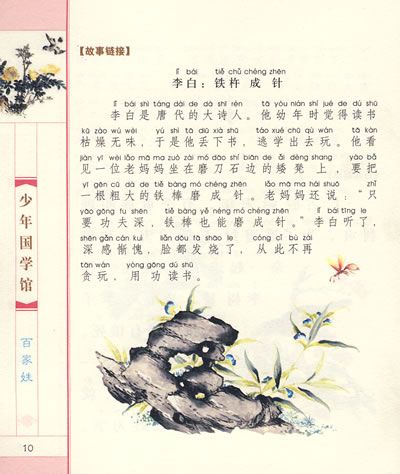 【故事链接】
lǐ bái tiě chǔ chéng zhēn
李白：铁杵成针
lǐ bái shì táng dài de dà shī rén tā yòu nián shí jué de dú shū
李白是唐代的大诗人。他幼年时觉得读书
kū zào wú wèi yú shì tā diū xià shū táo xué chū qù wán tā kàn
枯燥无味，于是他丢下书，逃学出去玩。他看
jiàn yī wèi lǎo mā ma zuò zài mó dāo shí biān de ǎi dèng shang yào bǎ
见一位老妈妈坐在磨刀石边的矮凳上，要把
yī gēn cū dà de tiě bàng mó chéng zhēn lǎo mā ma hái shuō zhǐ
一根粗大的铁棒磨成针。老妈妈还说：“只
yào gōng fu shēn tiě bàng yě néng mó chéng zhēn lǐ bái tīng le
要功夫深，铁棒也能磨成针。”李白听了，
shēn gǎn cán kuì liǎn dōu fā shāo le cóng cǐ bù zài
深感惭愧，脸都发烧了，从此不再
tān wán yòng gōng dú shū
贪玩，用功读书。
少年国学馆
百家娃
10